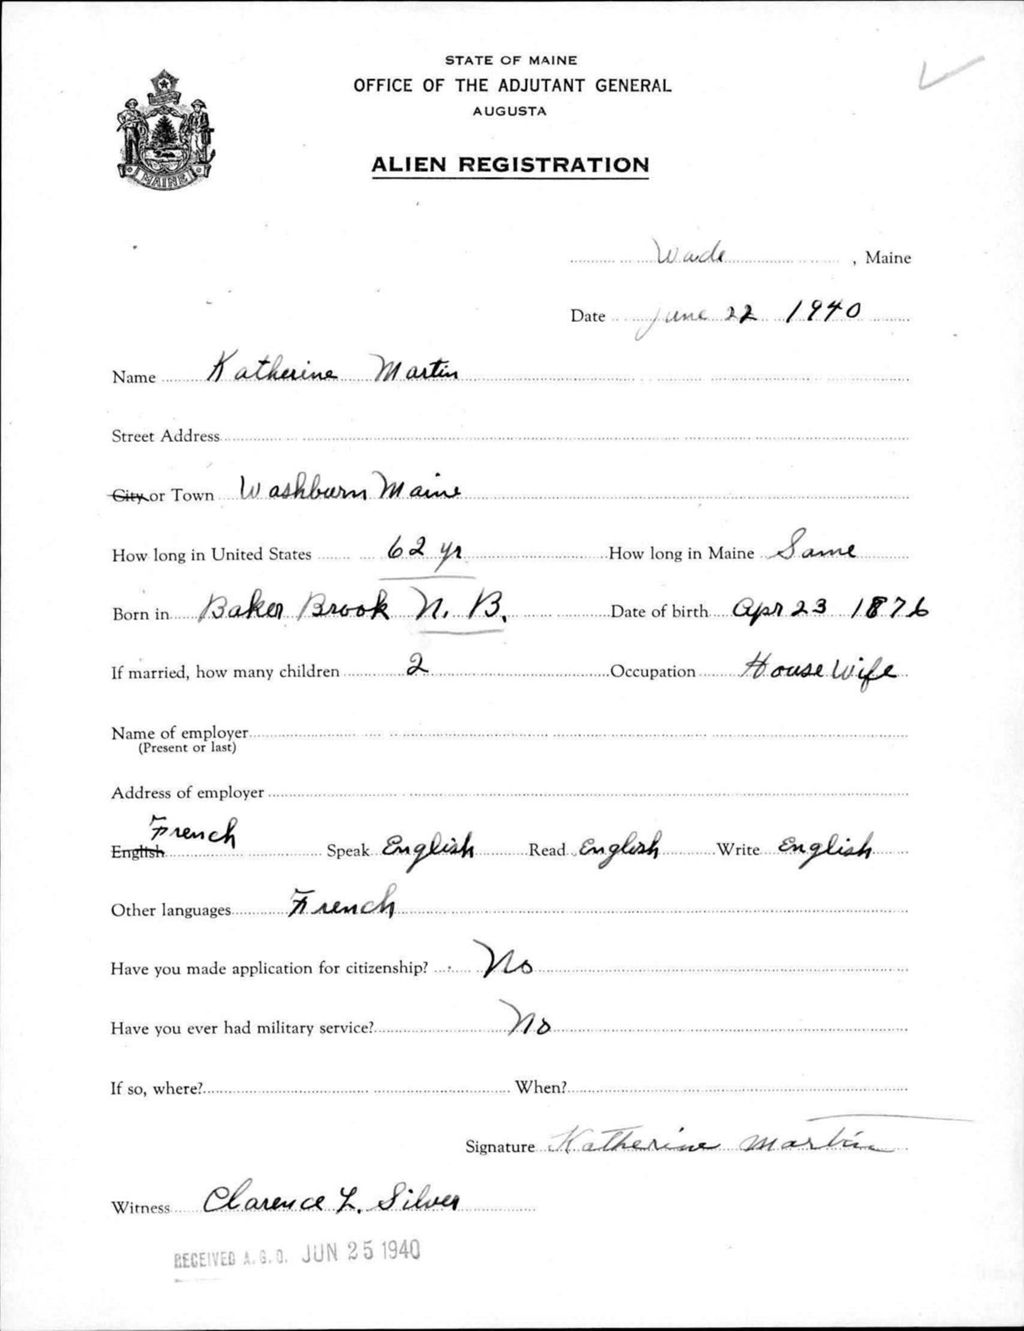 STATE OF MAINE
OFFICE OF THE ADJUTANT GENERAL
AUGUSTA
MAINE
ALIEN REGISTRATION
Wade, Maine
Date June 22 1940
Name Katherine Martin
Street Address
City or Town Washburn Maine
How long in United States 62 yr How long in Maine Same
Born in Baker Brook N. B. Date of birth Apr 23 1876
If married, how many children 2 Occupation House Wife
Name of employer
(Present or last)
Address of employer
French
English Speak English Read English Write English
Other languages French
Have you made application for citizenship? No
Have you ever had military service? No
If so, where? When?
Signature Katherine Martin
Witness Clarence L. Silver
RECEIVED A.G.O. JUN 25 1940